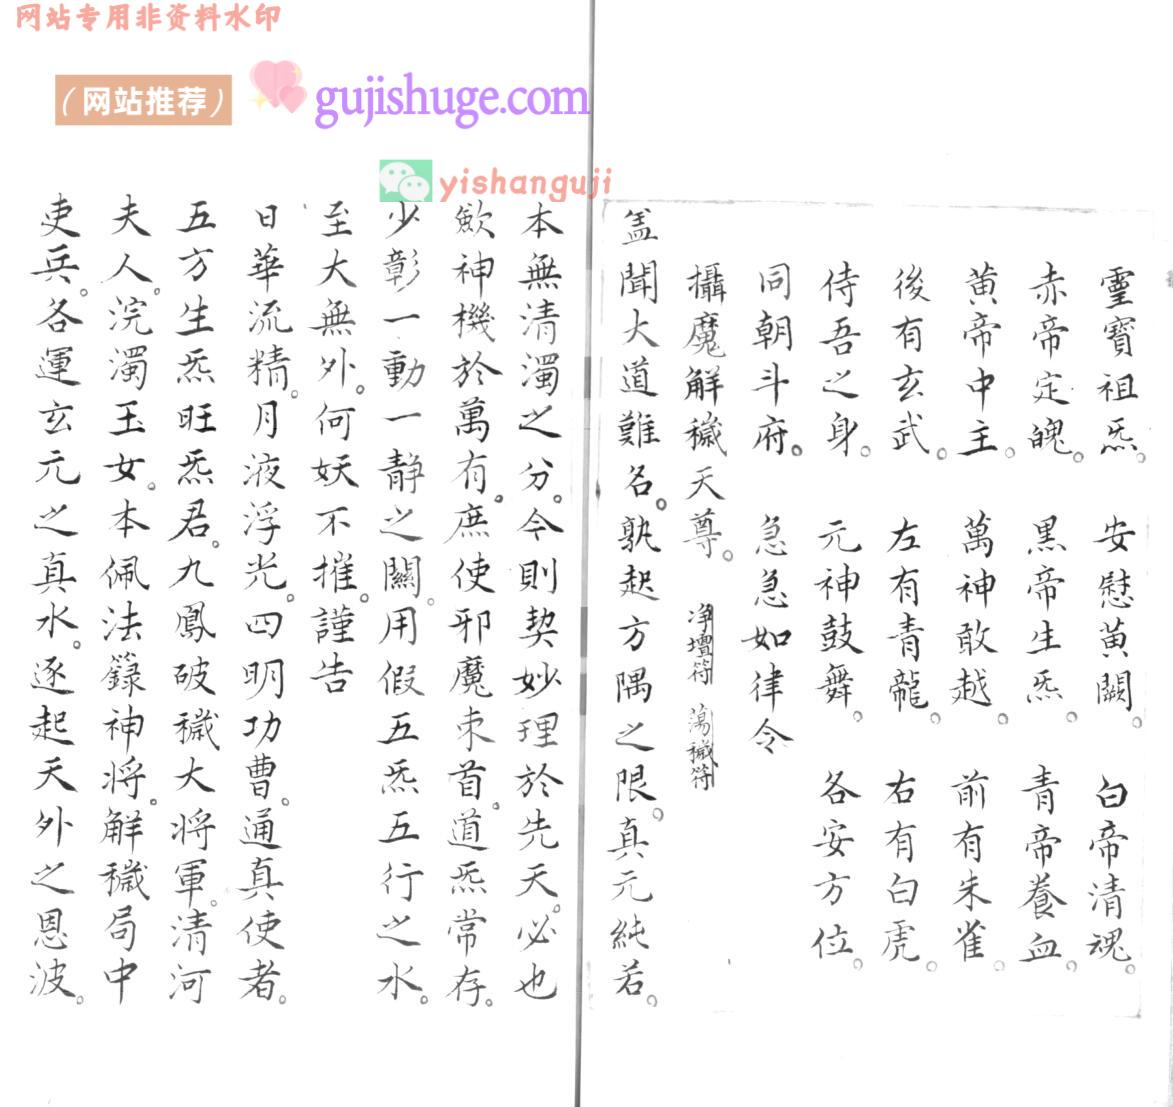 网站专用非资料水印
（网站推荐）
gujishuge.com
yishanguji
靈寶祖炁。安慰黃闕。白帝清魂。
赤帝定魄。黑帝生炁。青帝養血。
黃帝中主。萬神敢越。前有朱雀。
後有玄武。左有青龍。右有白虎。
侍吾之身。元神鼓舞。各安方位。
同朝斗府。急急如律令
攝魔解穢天尊。淨壇符 蕩穢符
盖聞大道難名。孰起方隅之限。真元純若。
本無清濁之分。今則契妙理於先天。必也
歛神機於萬有。庶使邪魔束首。道炁常存。
少彰一動一靜之關。用假五炁五行之水。
至大無外。何妖不摧。謹告
日華流精。月液浮光。四明功曹。通真使者。
五方生炁旺炁君。九鳳破穢大將軍。清河
夫人。浣濁玉女。本佩法籙神将。解穢局中
吏兵。各運玄元之真水。逐起天外之恩波。